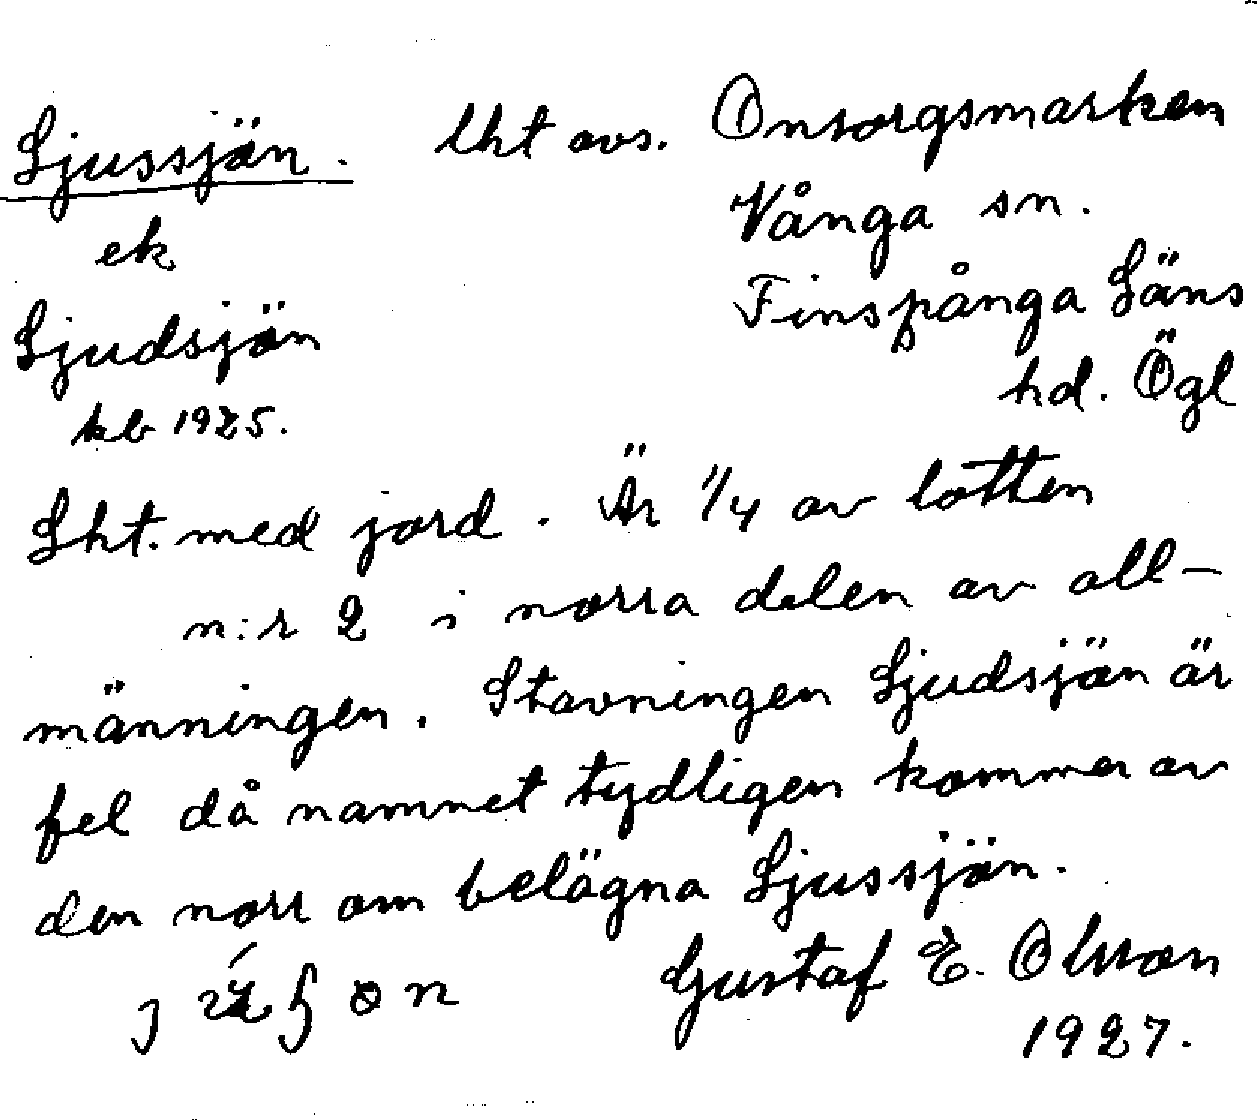 Ljussjön. lht avs. Onsorgsmarken
Vånga sn.
ek
Finspånga Läns
Ljudsjön
hd. Ögl
kb 1925.
Lht. med jord. Är 1/4 av lotten
n:r 2 i norra delen av all-
männingen. Stavningen Ljudsjön är
fel då namnet tydligen kommer av
den norr om belägna Ljussjön.
Gustaf E. Olsson
1927.